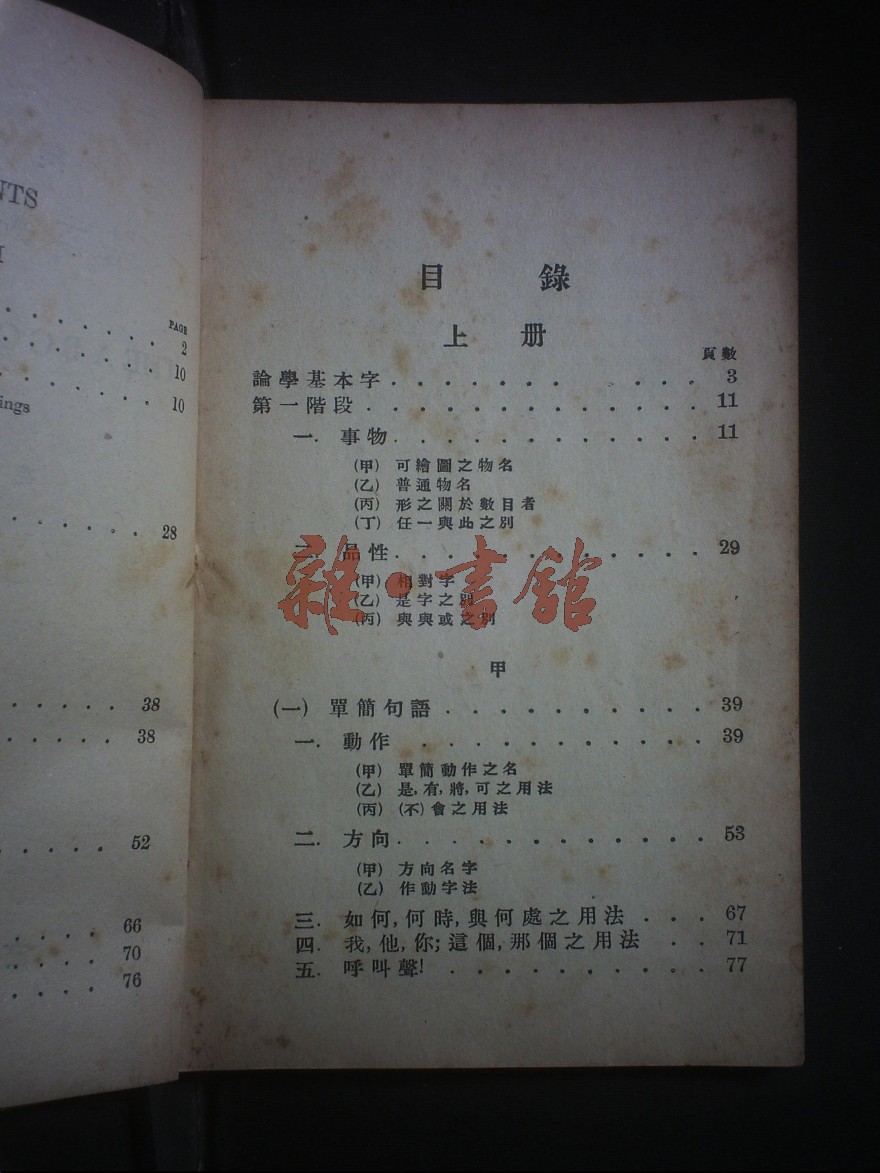 NTS
I
PAGE
2
10
ings 10
28
38
38
52
66
70
76
目 錄
上 册
頁數
論學基本字 . . . . . . . . . . . 3
第一階段 . . . . . . . . . . . . . 11
一. 事物 . . . . . . . . . . . . 11
(甲) 可繪圖之物名
(乙) 普通物名
(丙) 形之關於數目者
(丁) 任一與此之別
二. 品性 . . . . . . . . . . . . 29
(甲) 相對字
(乙) 是字之別
(丙) 與與或之別
雜·書館
甲
(一) 單簡句語 . . . . . . . . . . 39
一. 動作 . . . . . . . . . . . 39
(甲) 單簡動作之名
(乙) 是,有,將,可之用法
(丙) (不)會之用法
二. 方向 . . . . . . . . . . . . 53
(甲) 方向名字
(乙) 作動字法
三. 如何,何時,與何處之用法 . . . 67
四. 我,他,你;這個,那個之用法 . . 71
五. 呼叫聲! . . . . . . . . . . 77